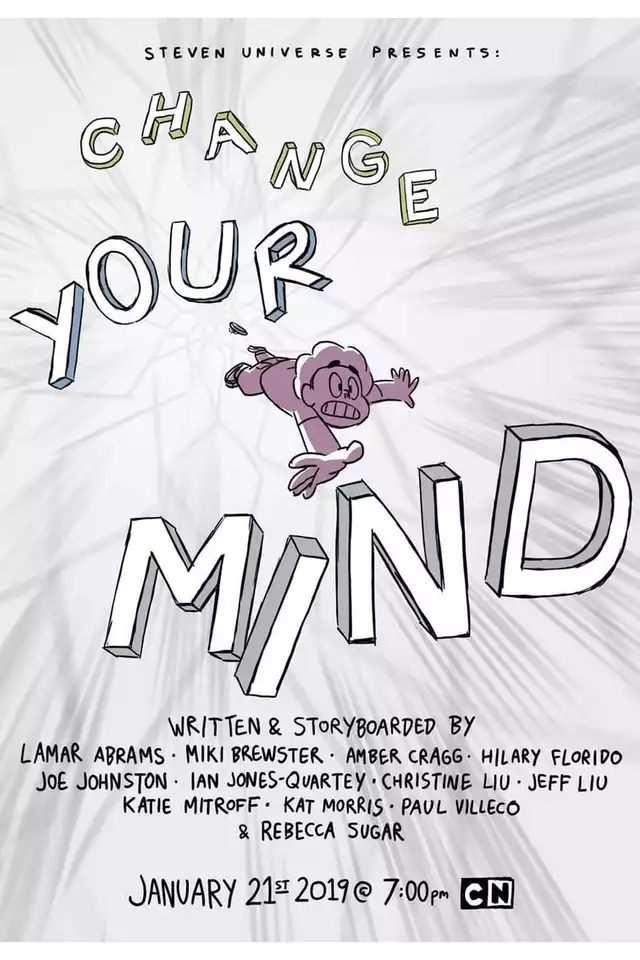 STEVEN UNIVERSE PRESENTS:
CHANGE
YOUR
MIND
WRITTEN & STORYBOARDED BY
LAMAR ABRAMS · MIKI BREWSTER · AMBER CRAGG · HILARY FLORIDO
JOE JOHNSTON · IAN JONES-QUARTEY · CHRISTINE LIU · JEFF LIU
KATIE MITROFF · KAT MORRIS · PAUL VILLECO
& REBECCA SUGAR
JANUARY 21ST 2019 @ 7:00pm CN